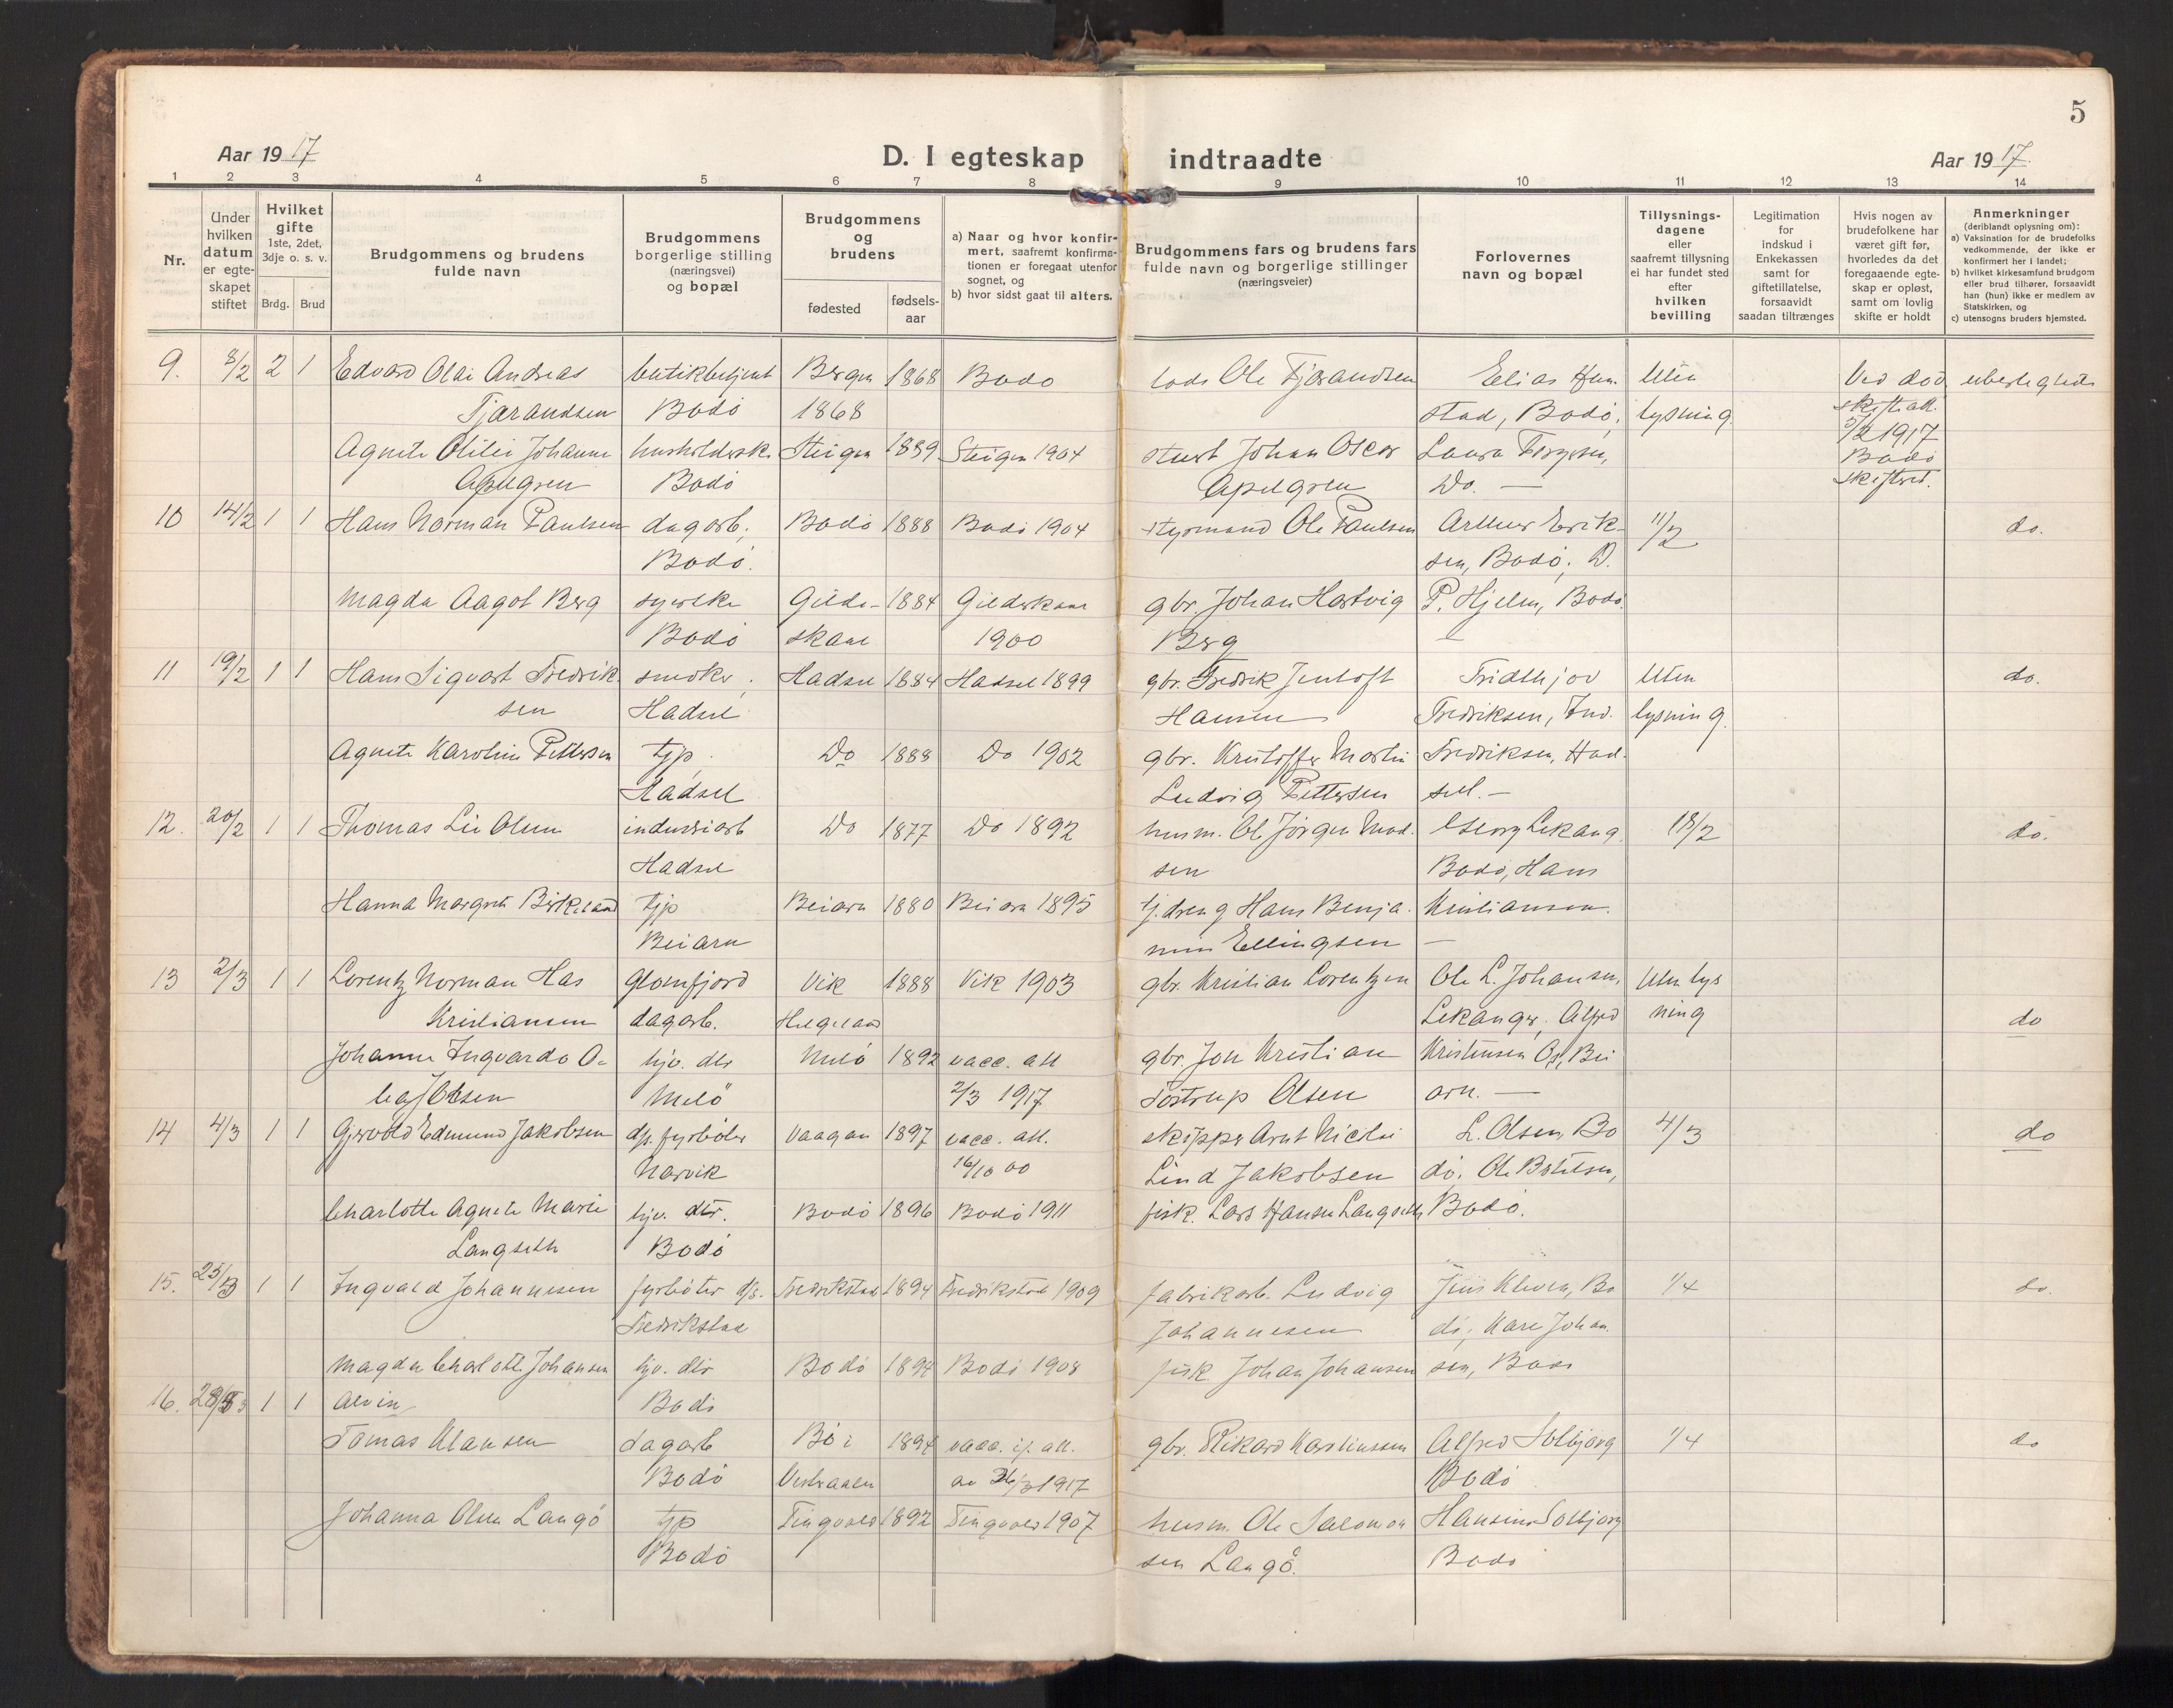 5
Aar 1917
D. I egteskap indtraadte
Aar 1917.
1 2 3 4 5 6 7 8 9 10 11 12 13 14
Nr.
Under hvilken datum er egte-skapet stiftet
Hvilket gifte 1ste, 2det, 3dje o. s. v.
Brdg. Brud
Brudgommens og brudens fulde navn
Brudgommens borgerlige stilling (næringsvei) og bopæl
Brudgommens og brudens
fødested
fødsels-aar
a) Naar og hvor konfir-mert, saafremt konfirma-tionen er foregaat utenfor sognet, og
b) hvor sidst gaat til alters.
Brudgommens fars og brudens fars fulde navn og borgerlige stillinger (næringsveier)
Forlovernes navn og bopæl
Tillysnings-dagene eller saafremt tillysning ei har fundet sted efter hvilken bevilling
Legitimation for indskud i Enkekassen samt for giftetillatelse, forsaavidt saadan tiltrænges
Hvis nogen av brudefolkene har været gift før, hvorledes da det foregaaende egte-skap er opløst, samt om lovlig skifte er holdt
Anmerkninger (deriblandt oplysning om):
a) Vaksination for de brudefolks vedkommende, der ikke er konfirmert her i landet;
b) hvilket kirkesamfund brudgom eller brud tilhører, forsaavidt han (hun) ikke er medlem av Statskirken, og
c) utensogns bruders hjemsted.
9. 8/2 2 1 Edvard Olai Andreas butikbetjent Bergen 1868 Bodø lods Ole Tjærandsen Elias Hun- Uten Ved død
Tjærandsen Bodø 1868 stad, Bodø; lysning skifteatt.
5/2 1917
Agnete Otilie Johanne husholdersk. Steigen 1889 Steigen 1904 Johan Oscar Laura Bodø
Apelgren Bodø Apelgren Do. — skifteret.
10 14/2 1 1 Hans Norman Paulsen dagarb. Bodø 1888 Bodø 1904 styrmand Ole Paulsen Arthur Erik- 11/2 do.
Bodø. sen, Bodø; D.
Magda Aagot Berg syerske Gilde- 1884 Gildeskaal gbr. Johan Hartvig P. Hjelm, Bodø.
Bodø skaal 1900 Berg —
11 19/2 1 1 Hans Sigvart Fredrik- smoker, Hadsel 1884 Hadsel 1899 gbr. Fredrik Jentoft Fridthjov Uten do.
sen Hadsel Hansen Fredriksen, Ind. lysning
Agnete Karoline Pettersen tjp. Do 1888 Do 1902 gbr. Kristoffer Martin Fredriksen, Had-
Hadsel Ludvig Pettersen sel. —
12. 20/2 1 1 Thomas Lie Olsen industriarb Do 1877 Do 1892 husm. Ole Jørgen Mad- Georg Lekang 18/2 do.
Hadsel sen Bodø, Hans
Hanna Margrete Birkeland tjp Beiarn 1880 Beiarn 1895 tj.dreng Hans Benja- Kristiansen.
Beiarn min Ellingsen —
13 2/3 1 1 Lorentz Norman Has Glomfjord Vik 1888 Vik 1903 gbr. Kristian Lorentzen Ole L. Johansen, Uten lys
Kristiansen dagarb. Helgeland Lekanger, Alfred ning do
Johanne Ingvarda O- hjv. dtr Melø 1892 vacc. att gbr. Jon Kristian Kristensen Os, Bei
Olsen Melø 2/3 1917 Tostrup Olsen arn. —
14 4/3 1 1 Gjervold Edmund Jakobsen d/s. fyrbøter Vaagan 1897 vacc. att. skipper Arnt Nicolai L. Olsen, Bo 4/3 do
Narvik 16/10 00 Lind Jakobsen dø. Ole Botelsen,
Charlotte Agnete Marie hjv. dtr. Bodø 1896 Bodø 1911 fisk. Lars Hansen Langseth Bodø.
Langseth Bodø
15. 25/3 1 1 Ingvald Johannesen fyrbøter d/s. Fredrikstad 1894 Fredrikstad 1909 fabrikarb. Ludvig Jens Kleven, Bo 1/4 do.
Fredrikstad Johannesen dø; Kare Johan
Magda Charlotte Johansen hjv. dtr Bodø 1894 Bodø 1908 fisk. Johan Johansen sen, Bodø
16. 28/3 1 1 Alvin Bodø
Tomas Klausen dagarb Bø i 1894 vacc. if. att. gbr. Rikard Karelinssen Alfred Solbjørg 1/4 do
Bodø Vesteraalen av 26/3 1917 Bodø
Johanna Olsen Langø tjp Tingvold 1892 Tingvold 1907 husm. Ole Salomon Hansine Solbjørg
Bodø sen Langø. Bodø